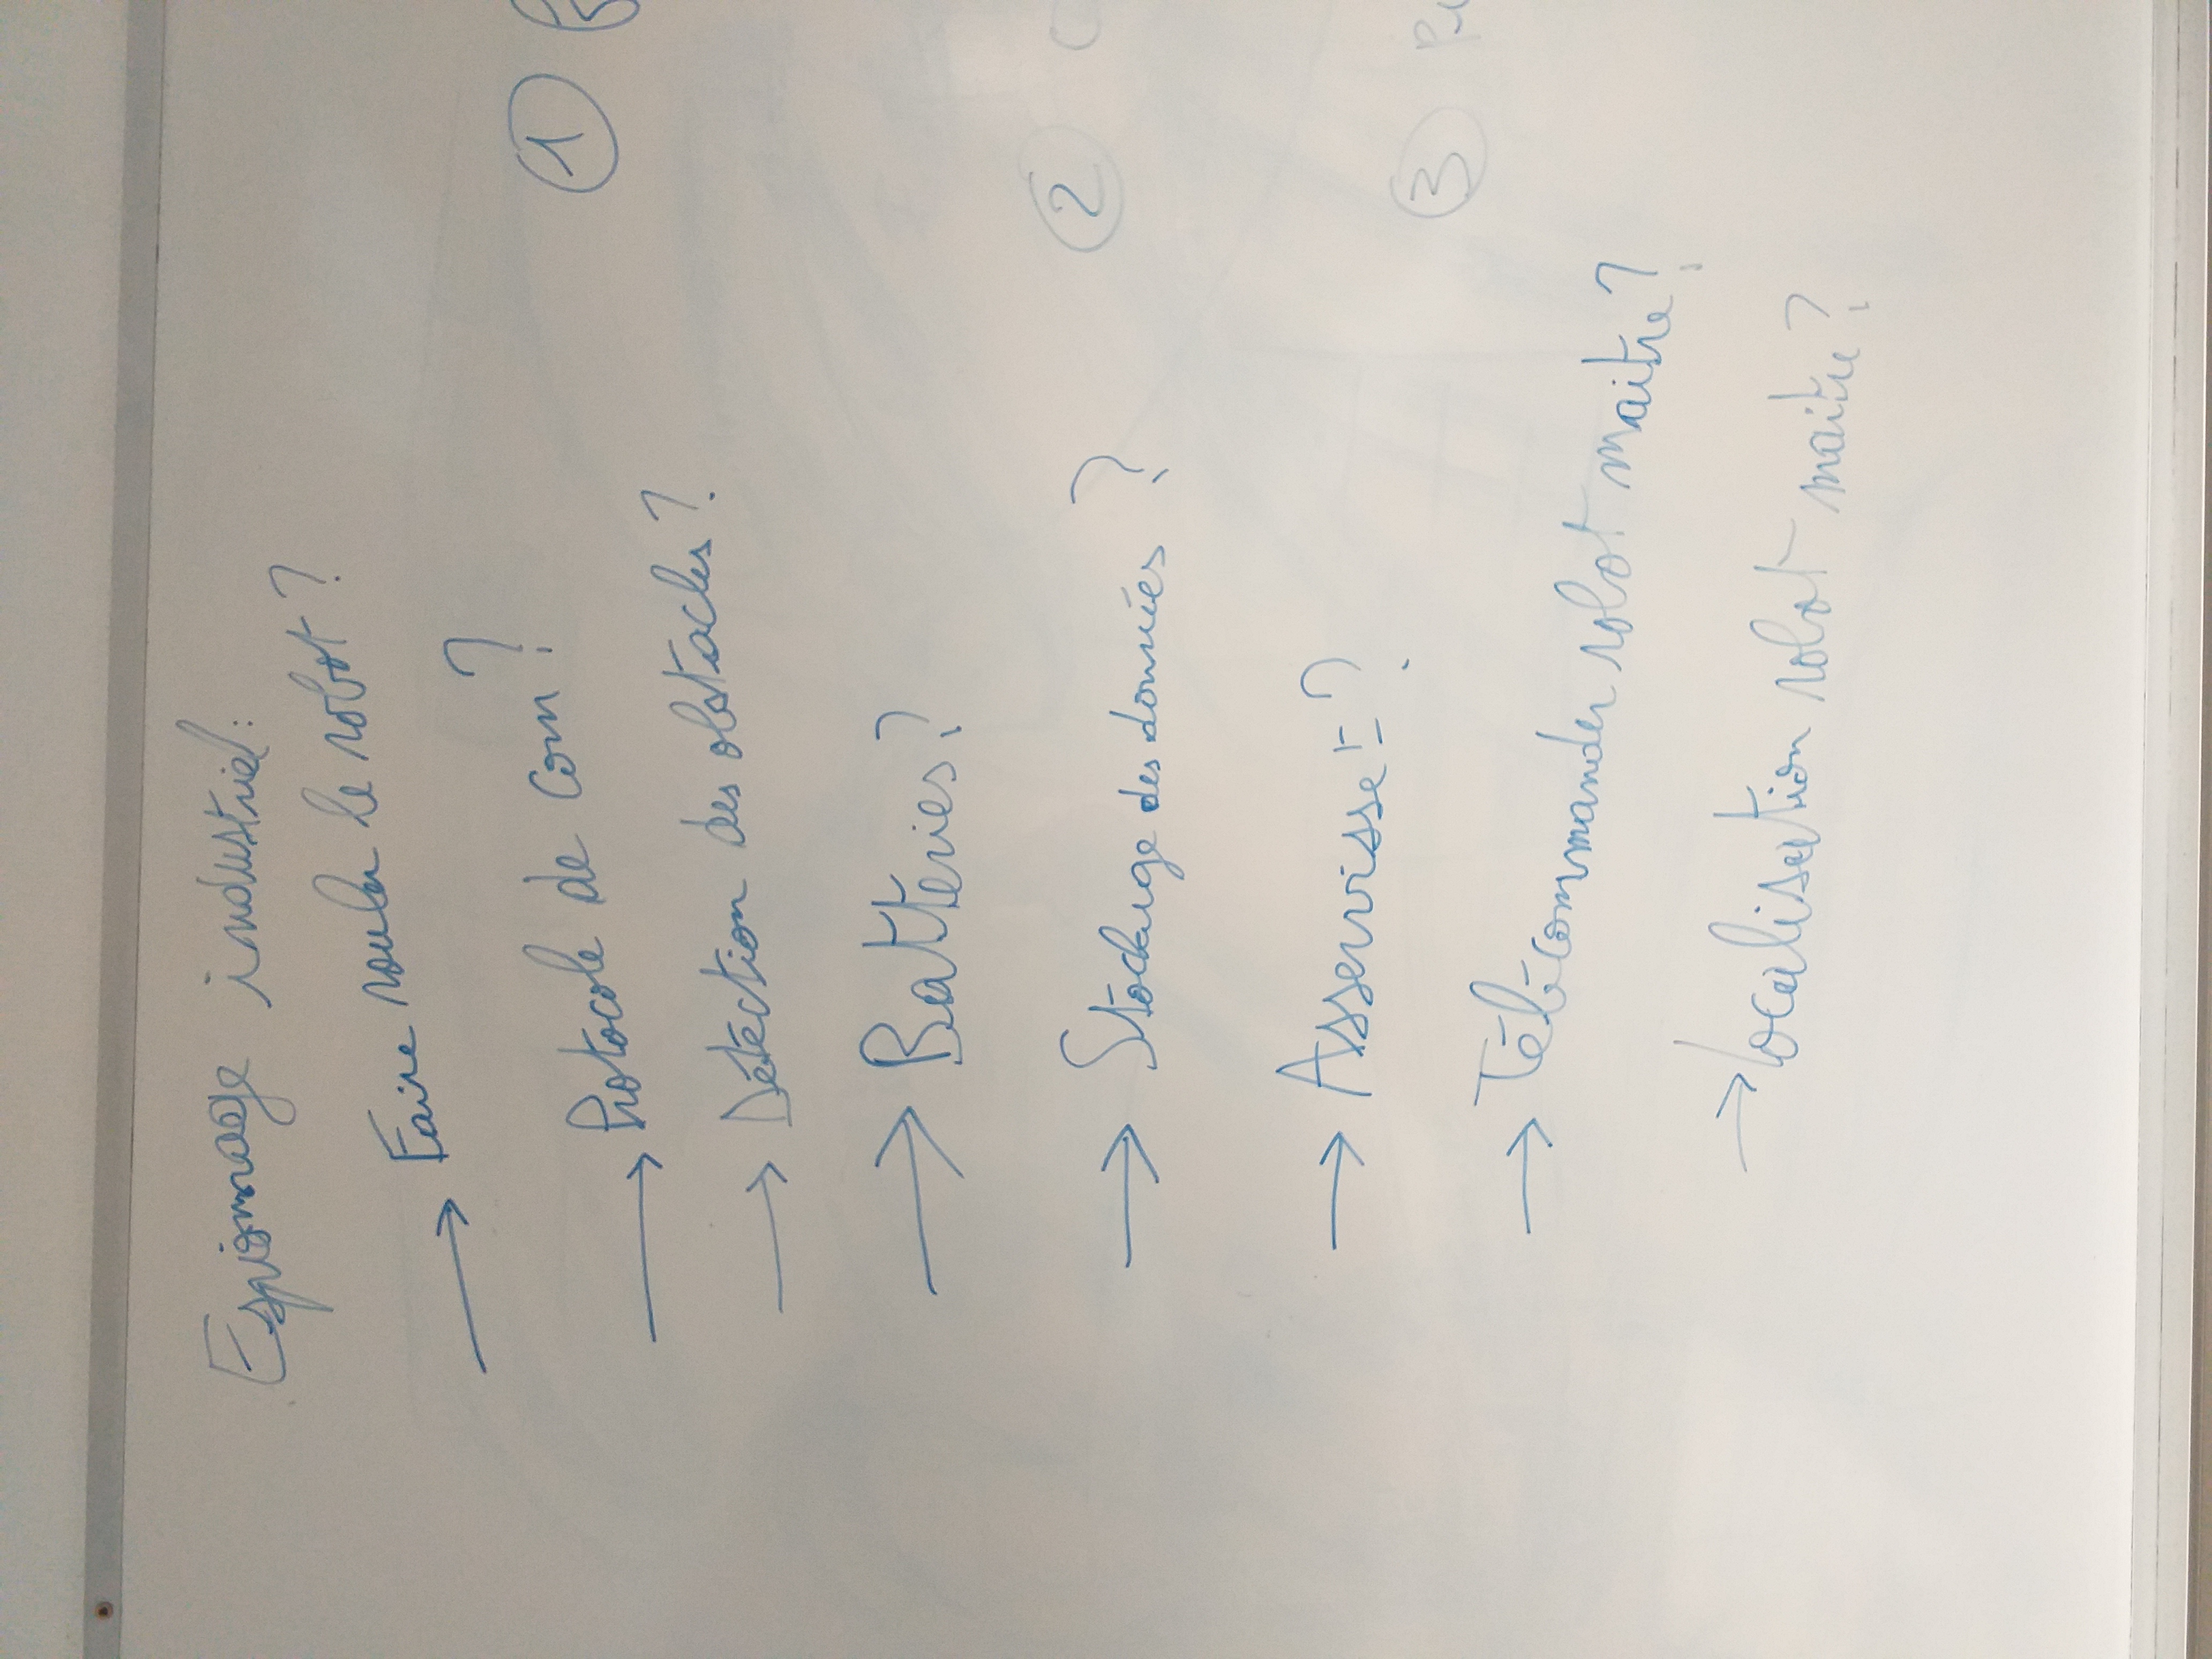 Espionnage industriel:
→ Faire rouler le robot ?
→ Protocole de Com ?
→ Détéction des obstacles ?
→ Batteries ?
→ Stockage des données ?
→ Asservisse
→ Télécommander robot maitre ?
→ Localisation robot maitre ?
①
②
③